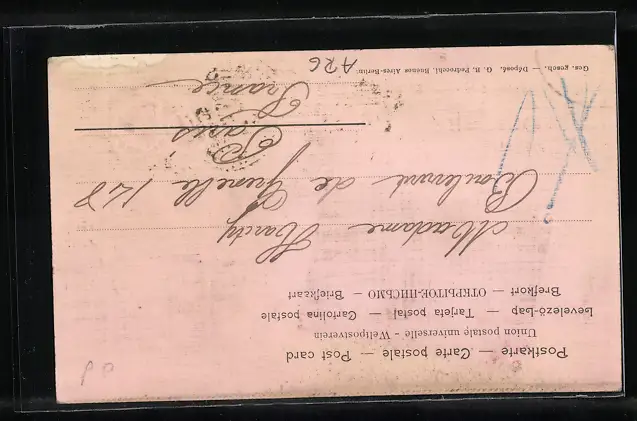 Postkarte — Carte postale — Post card
Union postale universelle - Weltpostverein
Levelező-Lap — Tarjeta postal — Cartolina postale
Brefkort — ОТКРЫТОЕ-ПИСЬМО — Briefkaart
Madame Hardy
Boulevard de Grenelle 128
Paris
France
ARG
Ges. gesch. — Déposé. G. R. Pedrocchi, Buenos Aires-Berlin.